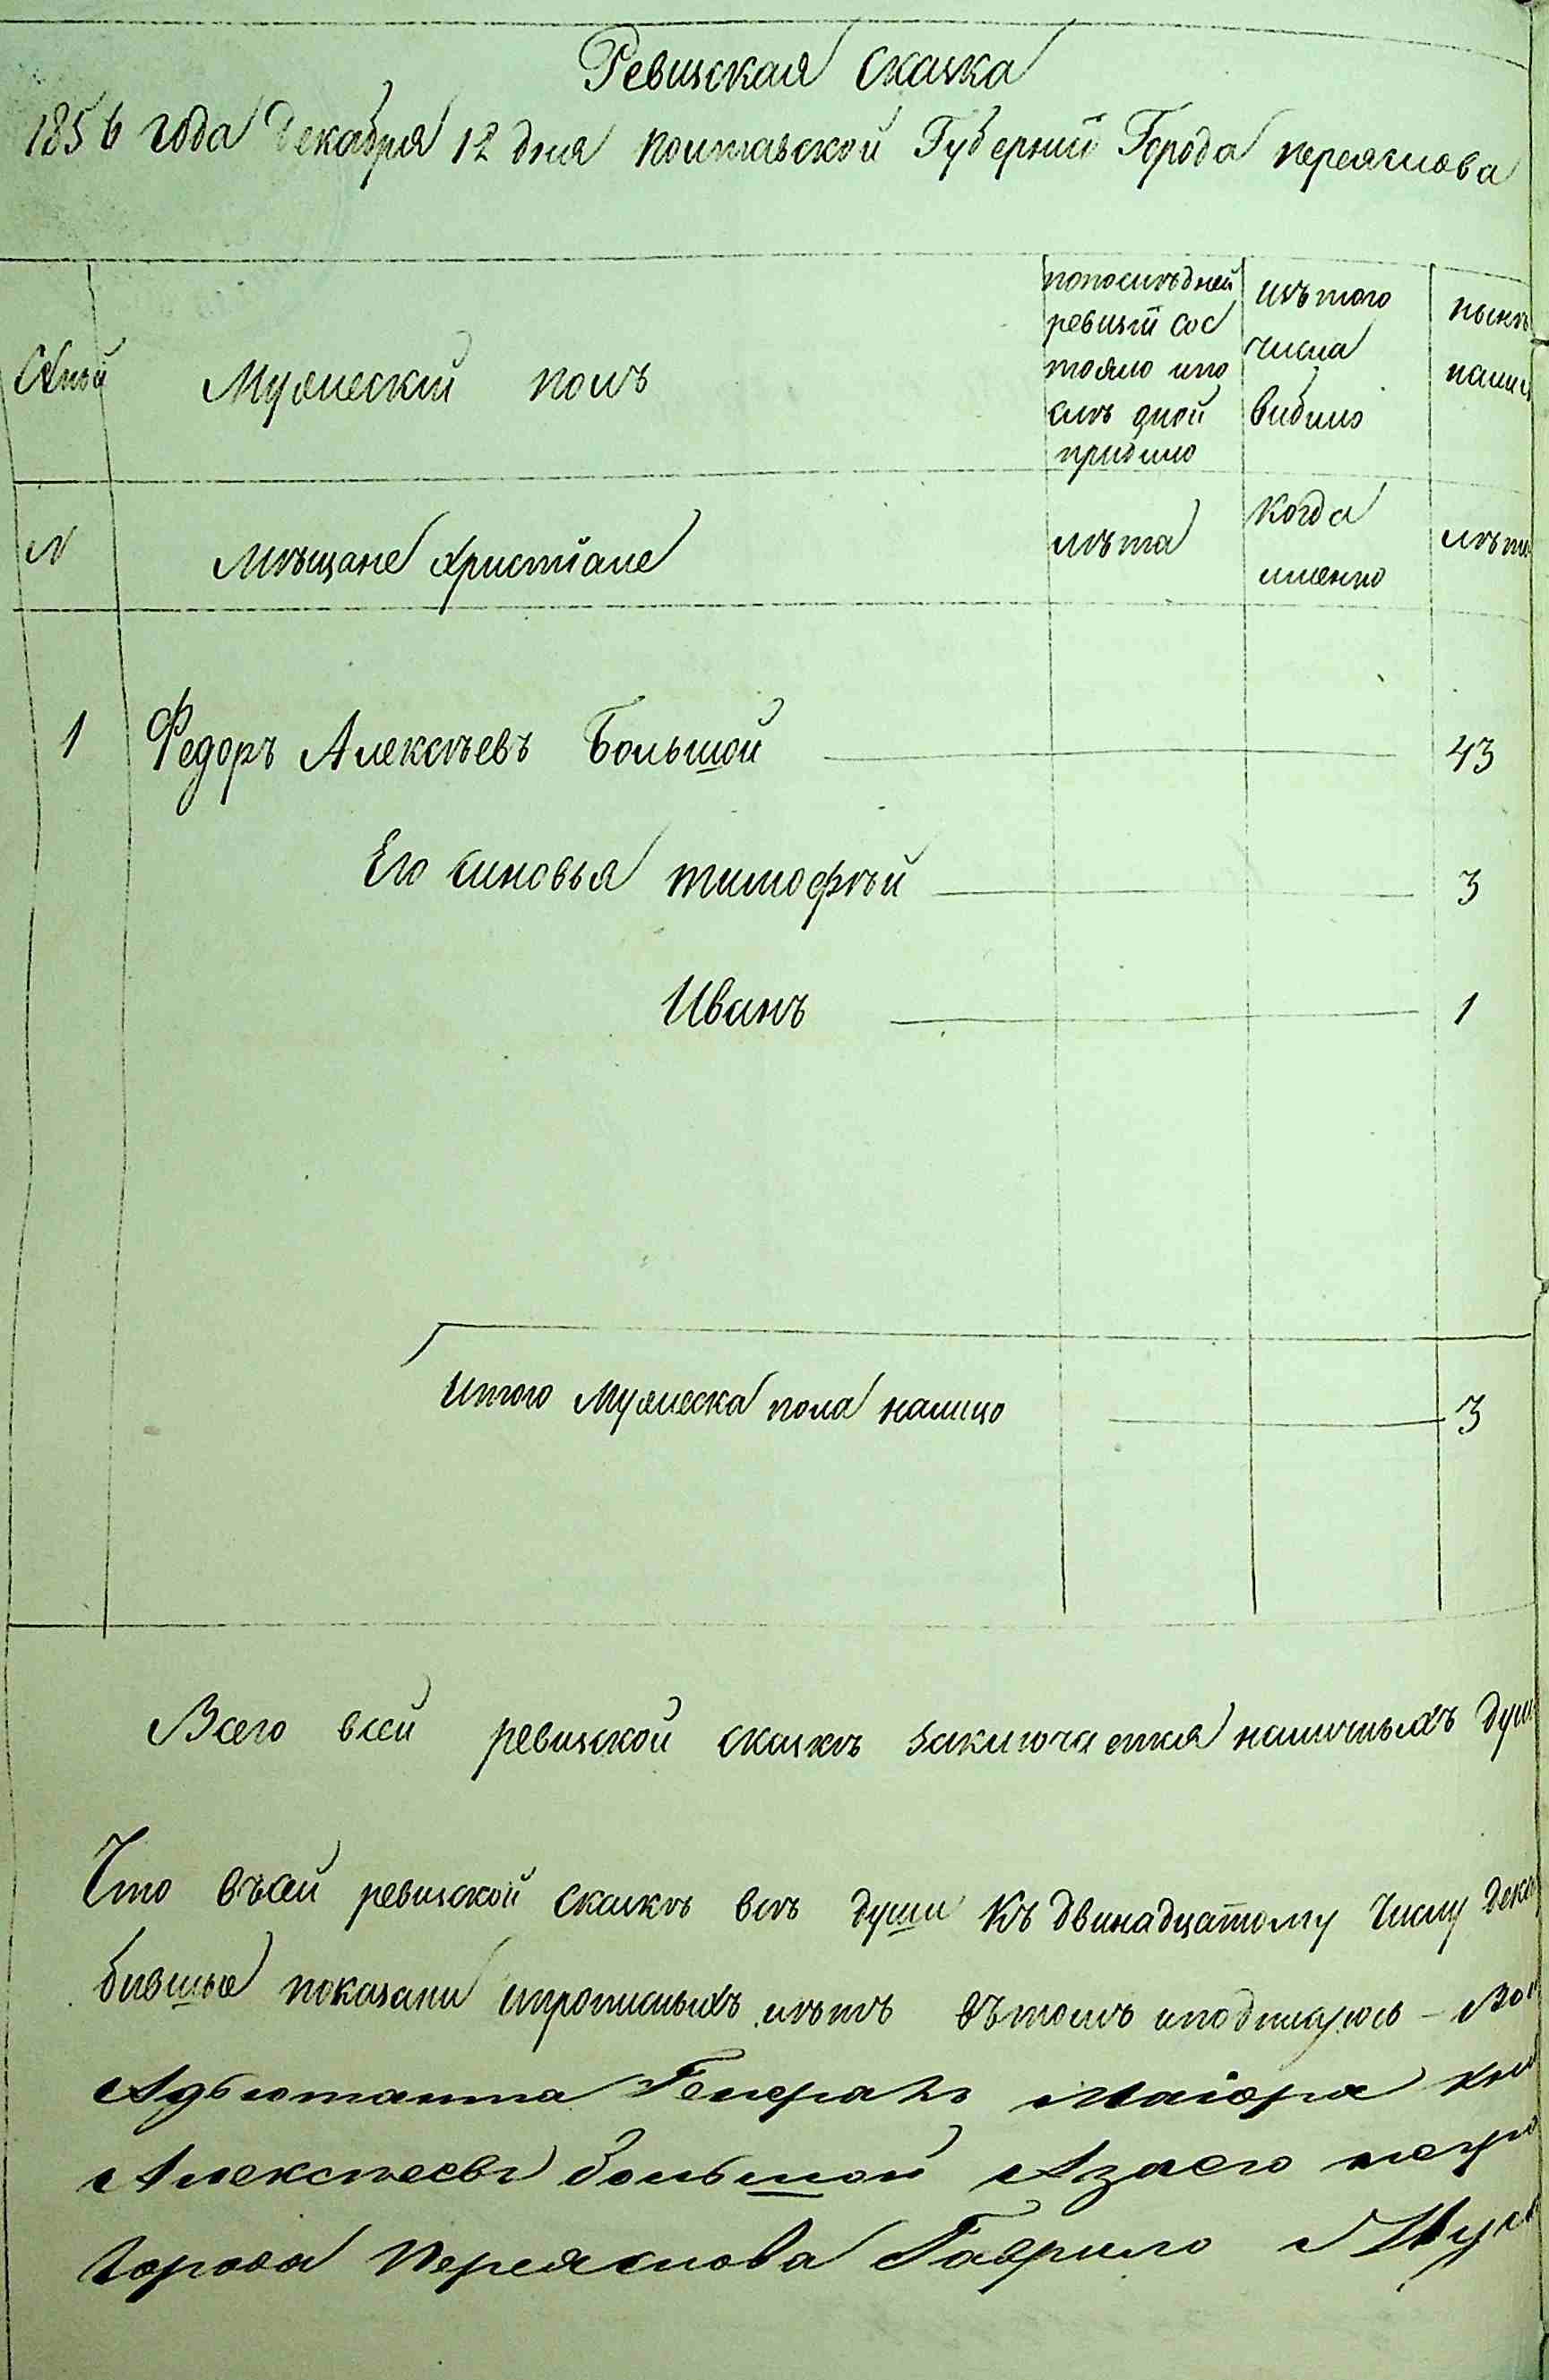 Ревизская Сказка
1856 года Декабря 12 дня полтавской Губернии Города переяслова
попослѣдней
ревизіи сос
тояло ипо
слѣ оной
прибило
изъ того
числа
вибило
нынѣ
Мужеский полъ
N
Мѣщане христіане
лѣта
когда
именно
лѣта
1 Федоръ Алексѣевъ Большой 43
Его синовья тимофѣй 3
Иванъ 1
Итого Мужеска пола налицо 3
Всего всей ревизской сказкѣ заключается наличныхъ душ
Что въсей ревизской сказкѣ всѣ души къ двинадцатому Числу Дека
бившые показани ипрописныхъ нѣтъ въ томъ иподписуюсь
Адъютанта Генералъ Маіора
Алексѣевъ Большой Азаего
Города Переяслова Гаврило